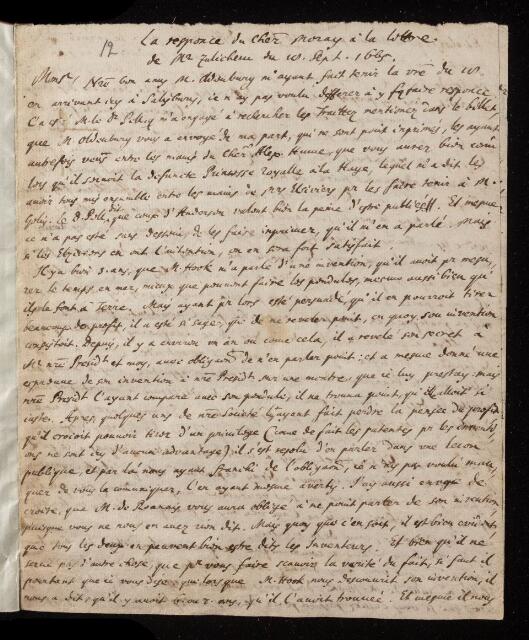 12 La responce du Cher Moray à la lettre
de Mr Zulichem du 18. Sept. 1665.
Monsr Nre bon amy M. Oldenburg m'ayant fait tenir la vre du 18
en arrivant icy à Salisbury, ie n'ay pas voulu differer à y faire responce
C'a esté M. le Dr Pell qui m'a engagé à rechercher les Traittez mentionez dans le billet,
que M. Oldenburg vous a envoyé de ma part, qui ne sont point imprimez, les ayant
autrefois veus entre les mains du Cher Alex. Hume, que vous aurez bien connu
lors qu'il servoit la defuncte Princesse Royalle à la Haye, lequel m'a dit les
auoir tous mis ensemble entre les mains de Mrs Elzeviers pr les faire tenir à M.
Golij. le D. Pell dit que ceux d'Anderson valent bien la peine d'estre publiez. Et mesme
ce n'a pas esté sans dessein de les faire imprimer, qu'il m'en a parlé. Mais
si les Elzeviers en ont l'intention, on en sera fort satisfait.
Il y a bien 3. ans, que M. Hook m'a parlé d'une invention, qu'il auoit pr mesu,
rer le temps en mer, mieux que pouvoient faire les pendules, mesme aussi bien qu'
ils le font à Terre. Mais ayant pr lors esté persuadé, qu'il en pourroit tirer
beaucoup de profit, il a esté si sage, que de ne reveler point, en quoy son invention
consistoit. Depuis, il y a environ un an ou come cela, il a revelé son secret à
nre Presidt et moy, avec obligaon de n'en parler point: et a mesme donné une
esprauve de son invention à nre Presidt sur une montre, que ie luy prestay. mais
nre Presidt l'ayant comparé avec son pendule, il ne trouva point, qu'il alloit si
iuste. Apres, quelques uns de nre Société luy ayant fait perdre la pensée du profit
qu'il croioit pouvoir tirer d'un privilege (come de fait les patentes pr les inventi,
ons ne sont icy d'aucun advantage) il s'est resolu d'en parler dans une lecon
publique, et par là nous ayant franchi de l'obligaon, ie n'ay pas voulu manq,
quer de vous la communiquer, l'en ayant mesme averty. J'ay aussi envie de
croire, que M. de Roanais vous aura obligé à ne point parler de son invention,
puisque vous ne nous en avez rien dit. Mais quoy que c'en soit, il est bien evident,
que tous les deux en peuvent bien estre dits les Inventeurs. Et bien qu'il ne
serve pas d'autre chose, que pr vous faire scauoir la verité du fait, si faut il
pourtant que ie vous dise, que lors que M. Hook nous descouvrit son invention, il
nous a dit, qu'il y auoit ans, qu'il l'auoit trouvée. Et mesme il nous